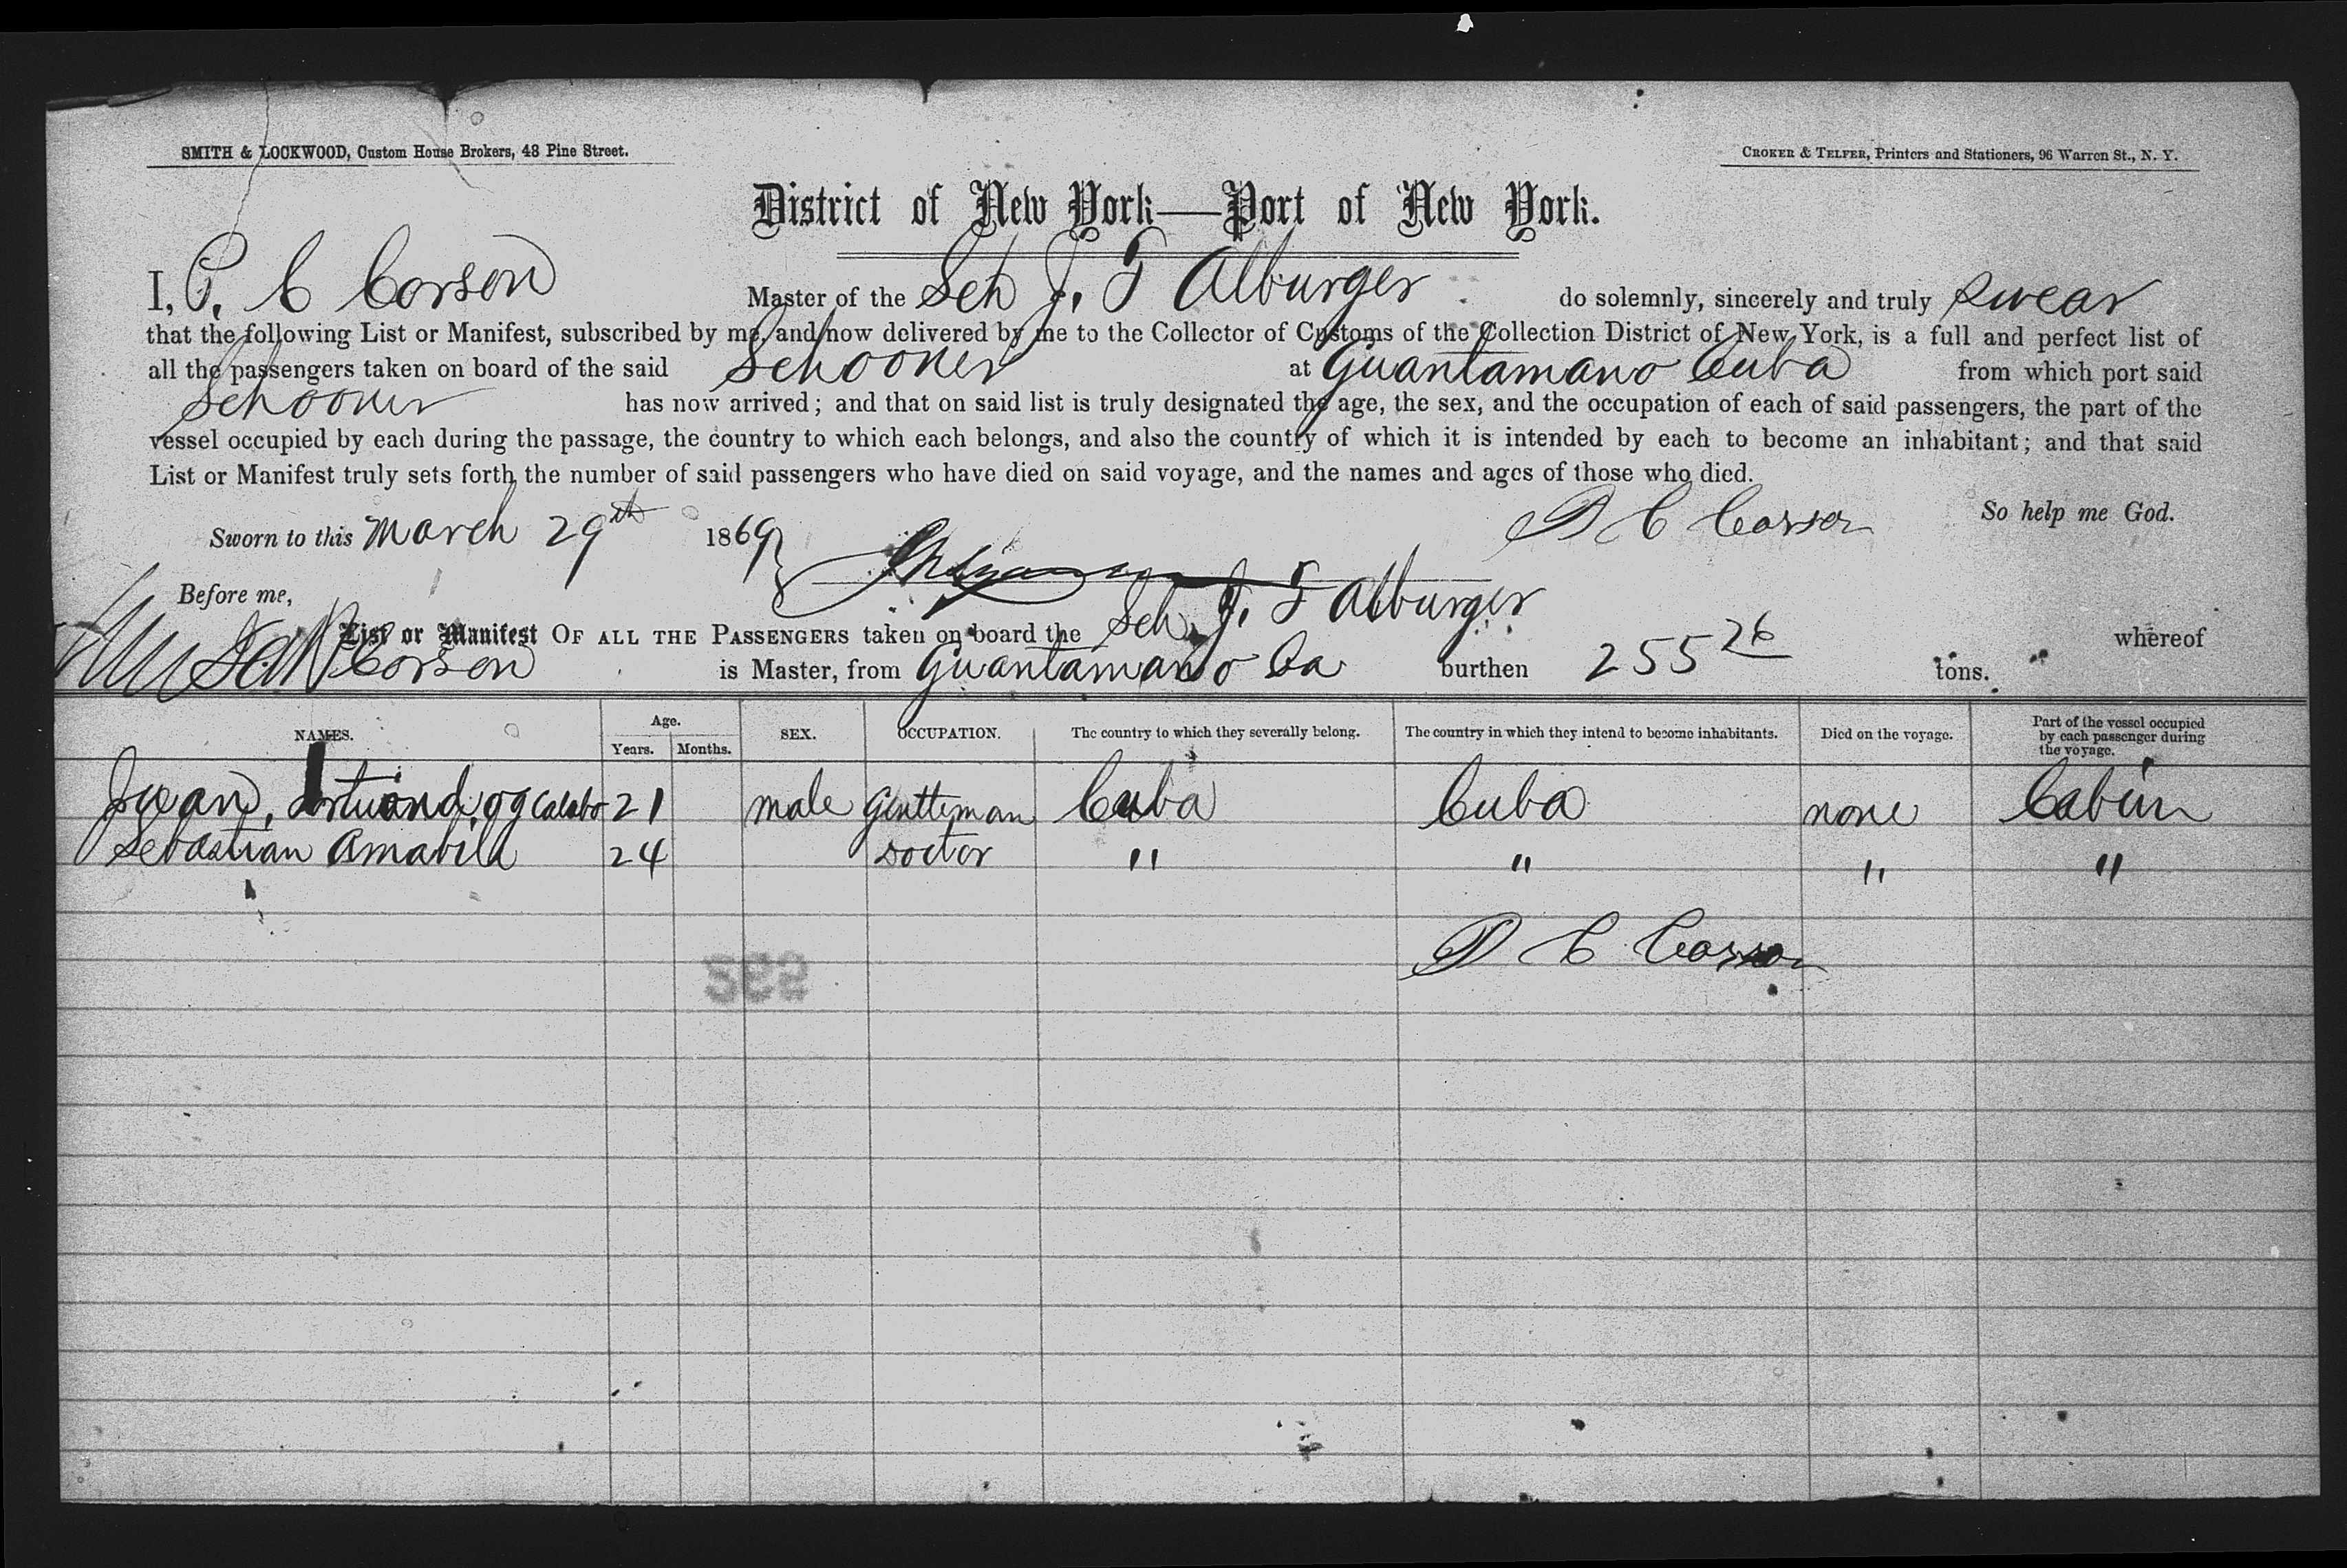 SMITH & LOCKWOOD, Custom House Brokers, 48 Pine Street.
CROKER & TELFER, Printers and Stationers, 96 Warren St., N. Y.
District of New York—Port of New York.
I, P. C Corson Master of the Sch J. T Alburger do solemnly, sincerely and truly swear
that the following List or Manifest, subscribed by me, and now delivered by me to the Collector of Customs of the Collection District of New York, is a full and perfect list of
all the passengers taken on board of the said Schooner at Guantamano Cuba from which port said
Schooner has now arrived; and that on said list is truly designated the age, the sex, and the occupation of each of said passengers, the part of the
vessel occupied by each during the passage, the country to which each belongs, and also the country of which it is intended by each to become an inhabitant; and that said
List or Manifest truly sets forth the number of said passengers who have died on said voyage, and the names and ages of those who died.
P C Corson So help me God.
Sworn to this March 29th 1869
Before me,
List or Manifest OF ALL THE PASSENGERS taken on board the Sch. J. T Alburger whereof
Corson is Master, from Guantamano Ca burthen 255 26 tons.
NAMES. Age. Years. Months. SEX. OCCUPATION. The country to which they severally belong. The country in which they intend to become inhabitants. Died on the voyage. Part of the vessel occupied by each passenger during the voyage.
Juan, 21 male Gentleman Cuba Cuba none Cabin
Sebastian Amabild 24 Doctor " " " "
P C Corson